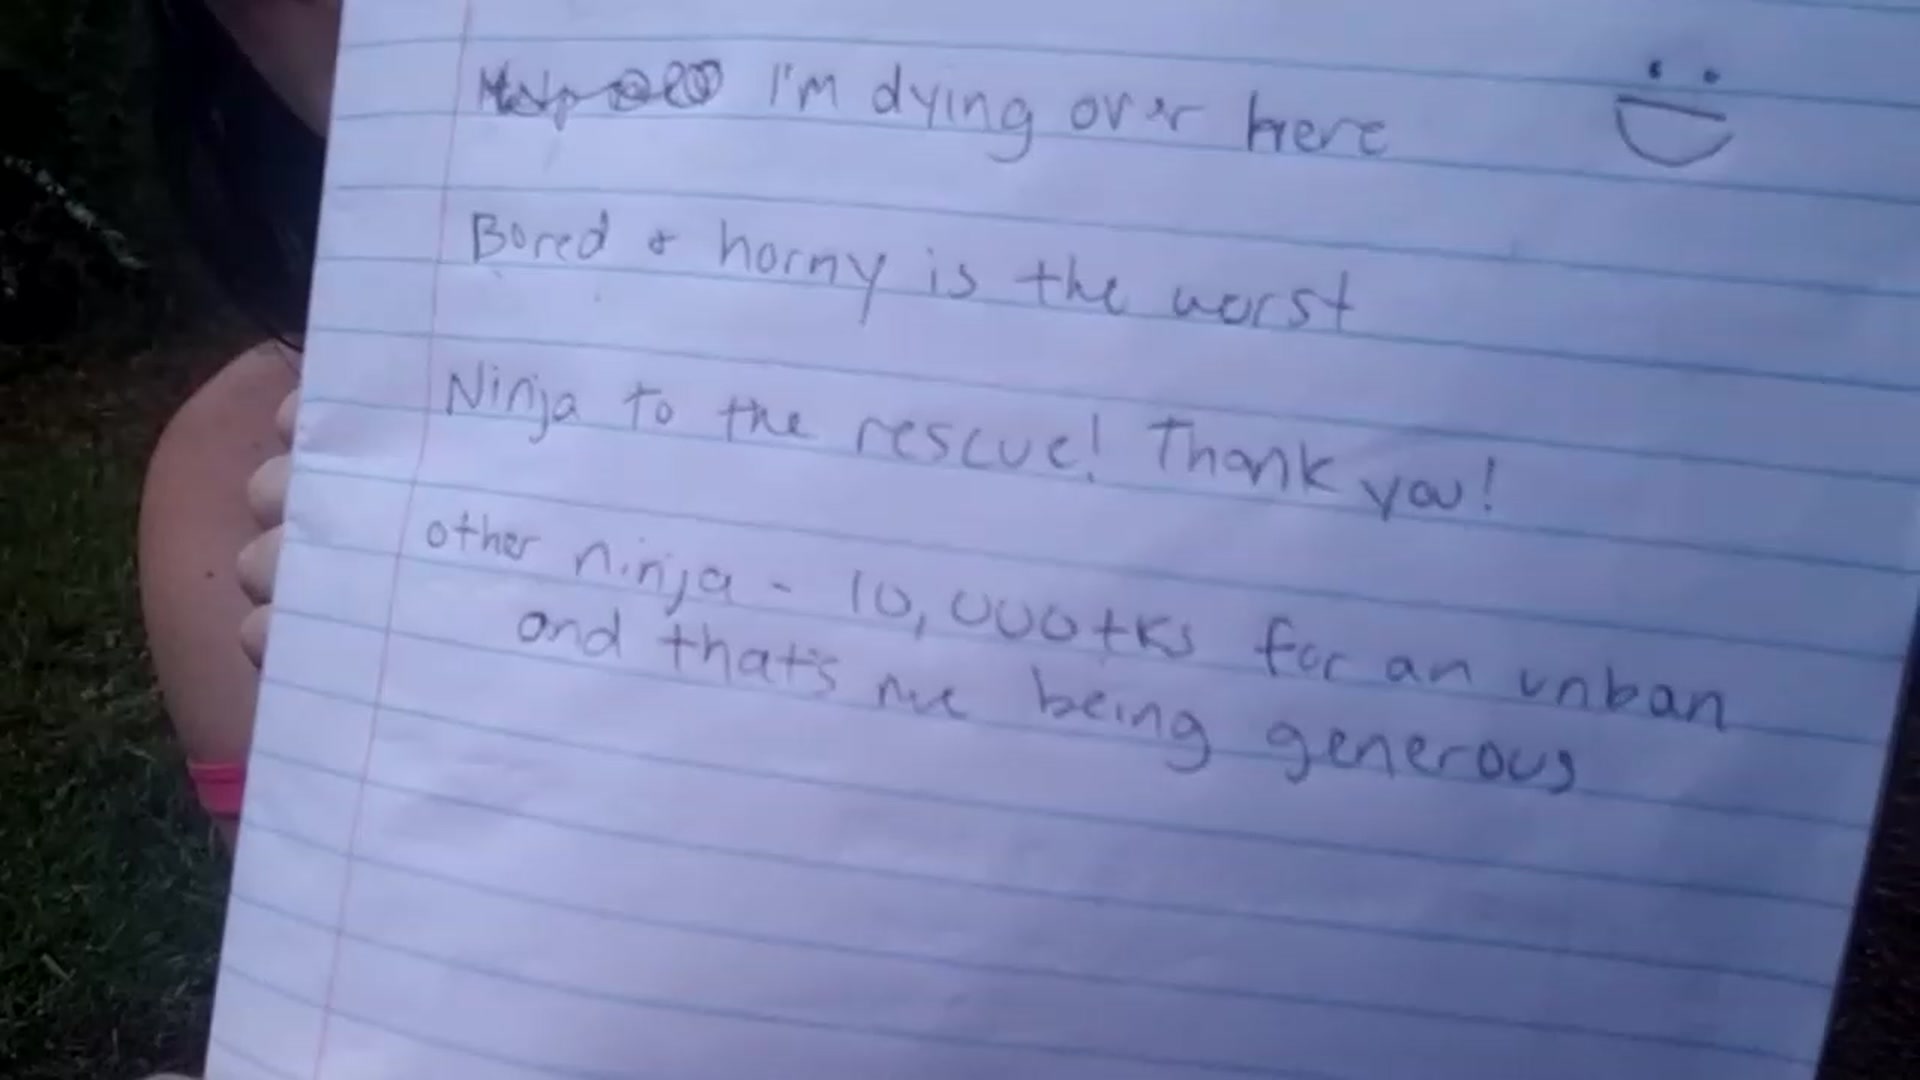 I'm dying over here
Bored & horny is the worst
Ninja to the rescue! Thank you!
other ninja - 10,000tks for an unban
and that's me being generous